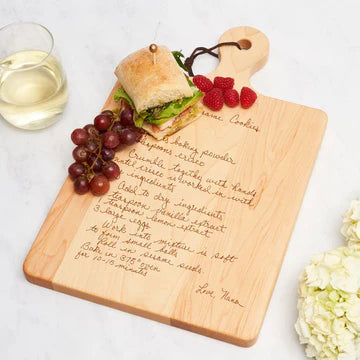 Sesame Cookies
baking powder
teaspoons crisco
Crumble together with hands
until crisco is worked in with
ingredients
Add to dry ingredients
teaspoon vanilla extract
teaspoon lemon extract
3 large eggs
Work into mixture is soft
form small balls
Roll in sesame seeds.
Bake in 375° oven
for 10-15 minutes
Love, Nana